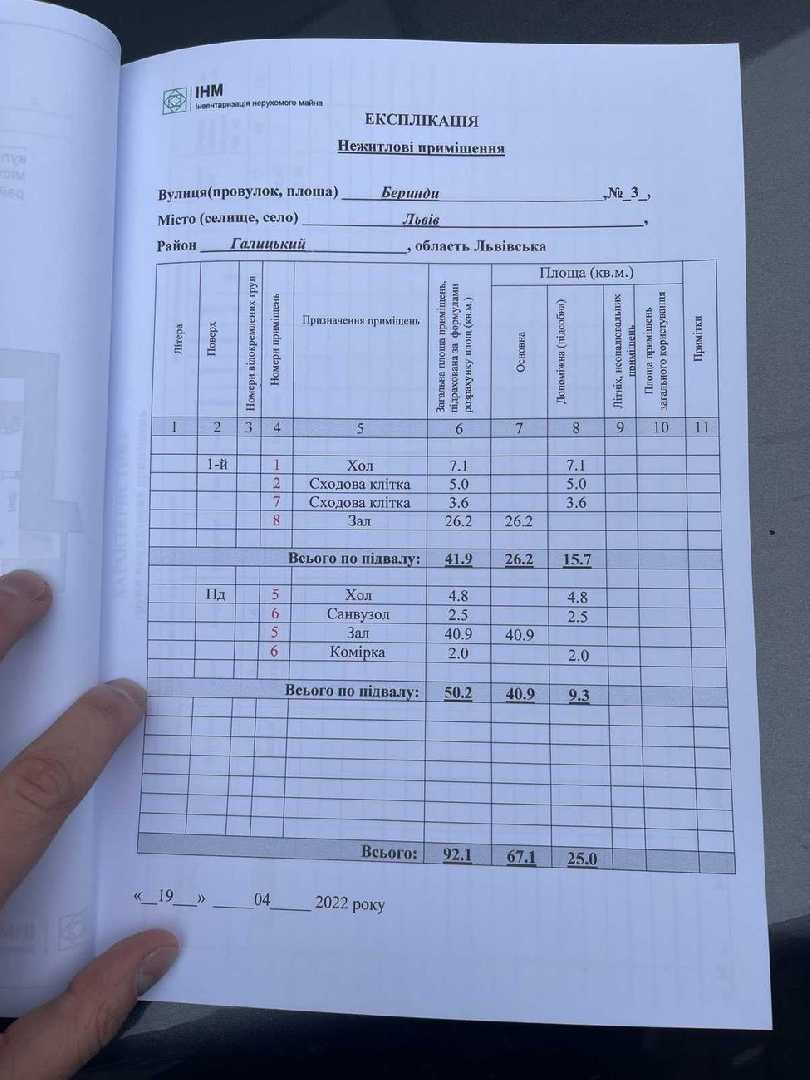 ІНМ
Інвентаризація нерухомого майна
ЕКСПЛІКАЦІЯ
Нежитлові приміщення
Вулиця(провулок, площа) Беринди ,№_3_,
Місто (селище, село) Львів ,
Район Галицький , область Львівська
Літера Поверх Номери відокремлених груп Номери приміщень Призначення приміщень Загальна площа приміщень, підрахована за формулами розрахунку площ (кв.м.) Площа (кв.м.) Основна Допоміжна (підсобна) Літніх, неопалювальних приміщень Площа приміщень загального користування Примітки
1 2 3 4 5 6 7 8 9 10 11
1-й 1 Хол 7.1 7.1
2 Сходова клітка 5.0 5.0
7 Сходова клітка 3.6 3.6
8 Зал 26.2 26.2
Всього по підвалу: 41.9 26.2 15.7
Пд 5 Хол 4.8 4.8
6 Санвузол 2.5 2.5
5 Зал 40.9 40.9
6 Комірка 2.0 2.0
Всього по підвалу: 50.2 40.9 9.3
Всього: 92.1 67.1 25.0
«__19___» _____04_____ 2022 року